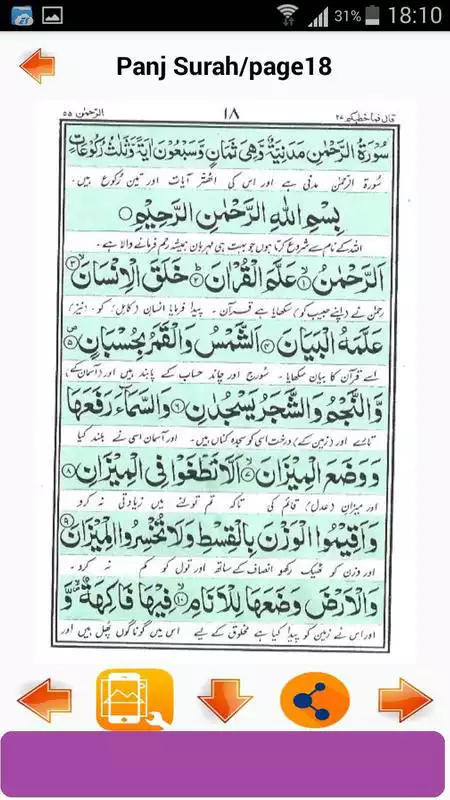 31% 18:10
Panj Surah/page18
قال فما خطبكم ٢٧ ١٨ الرّحمٰن ٥٥
سُوْرَةُ الرَّحْمٰنِ مَدَنِيَّةٌ وَّهِيَ ثَمَانٍ وَّسَبْعُوْنَ اٰيَةً وَّثَلٰثُ رُكُوْعَاتٍ
سُورۃ الرحمٰن مدنی ہے اور اس کی اٹھتر آیات اور تین رکوع ہیں۔
بِسْمِ اللّٰهِ الرَّحْمٰنِ الرَّحِيْمِ
اللہ کے نام سے شروع کرتا ہوں جو بہت ہی مہربان ہمیشہ رحم فرمانے والا ہے۔
اَلرَّحْمٰنُ ۙ﴿١﴾ عَلَّمَ الْقُرْاٰنَ ؕ﴿٢﴾ خَلَقَ الْاِنْسَانَ ۙ﴿٣﴾
رحمٰن نے (اپنے حبیب کو) سکھایا ہے قرآن۔ پیدا فرمایا انسان (کامل) کو۔ (نیز)
عَلَّمَهُ الْبَيَانَ ﴿٤﴾ اَلشَّمْسُ وَالْقَمَرُ بِحُسْبَانٍ ۪﴿٥﴾
اسے قرآن کا بیان سکھایا۔ سورج اور چاند حساب کے پابند ہیں اور (آسمان کے)
وَّالنَّجْمُ وَالشَّجَرُ يَسْجُدٰنِ ﴿٦﴾ وَالسَّمَآءَ رَفَعَهَا
تارے اور (زمین کے) درخت اسی کو سجدہ کناں ہیں۔ اور آسمان اسی نے بلند کیا
وَوَضَعَ الْمِيْزَانَ ۙ﴿٧﴾ اَلَّا تَطْغَوْا فِي الْمِيْزَانِ ﴿٨﴾
اور میزان (عدل) قائم کی تاکہ تم تولنے میں زیادتی نہ کرو
وَاَقِيْمُوا الْوَزْنَ بِالْقِسْطِ وَلَا تُخْسِرُوا الْمِيْزَانَ ﴿٩﴾
اور وزن کو ٹھیک رکھو انصاف کے ساتھ اور تول کو کم نہ کرو۔
وَالْاَرْضَ وَضَعَهَا لِلْاَنَامِ ۙ﴿١٠﴾ فِيْهَا فَاكِهَةٌ ۪ۙ وَّ
اور اس نے زمین کو پیدا کیا ہے مخلوق کے لیے اس میں گوناگوں پھل ہیں اور